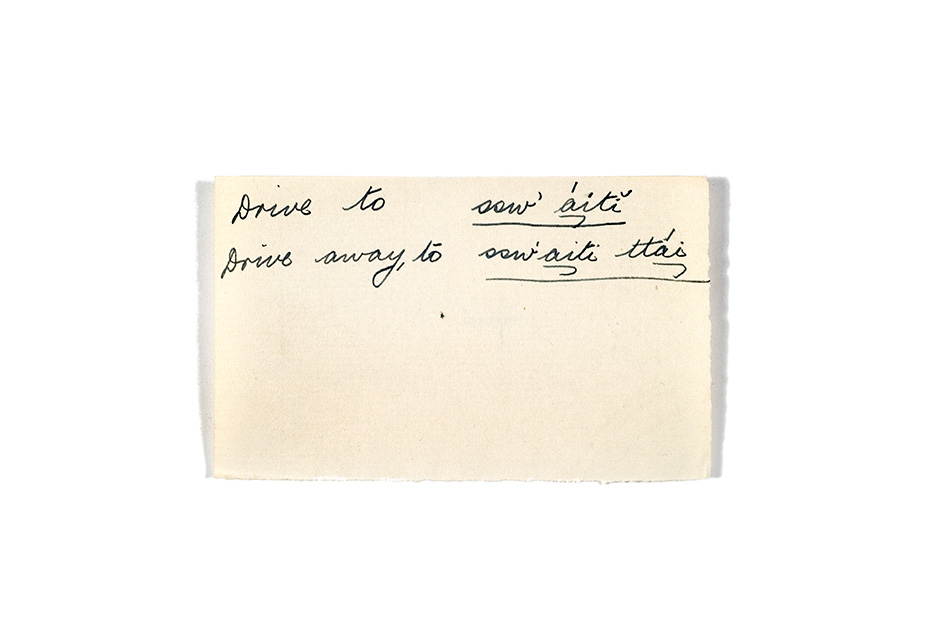 Drive to ssw' áitĭ
Drive away, to ssw'aiti ttái